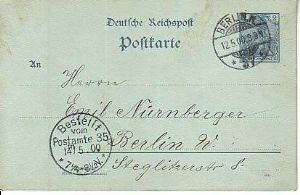 Deutsche Reichspost
Postkarte
BERLIN
12.5.00.
An
Herrn
Emil Nürnberger
Bestellt
vom
Postamte 35
12/5.00
Berlin W.
Steglitzerstr. 8